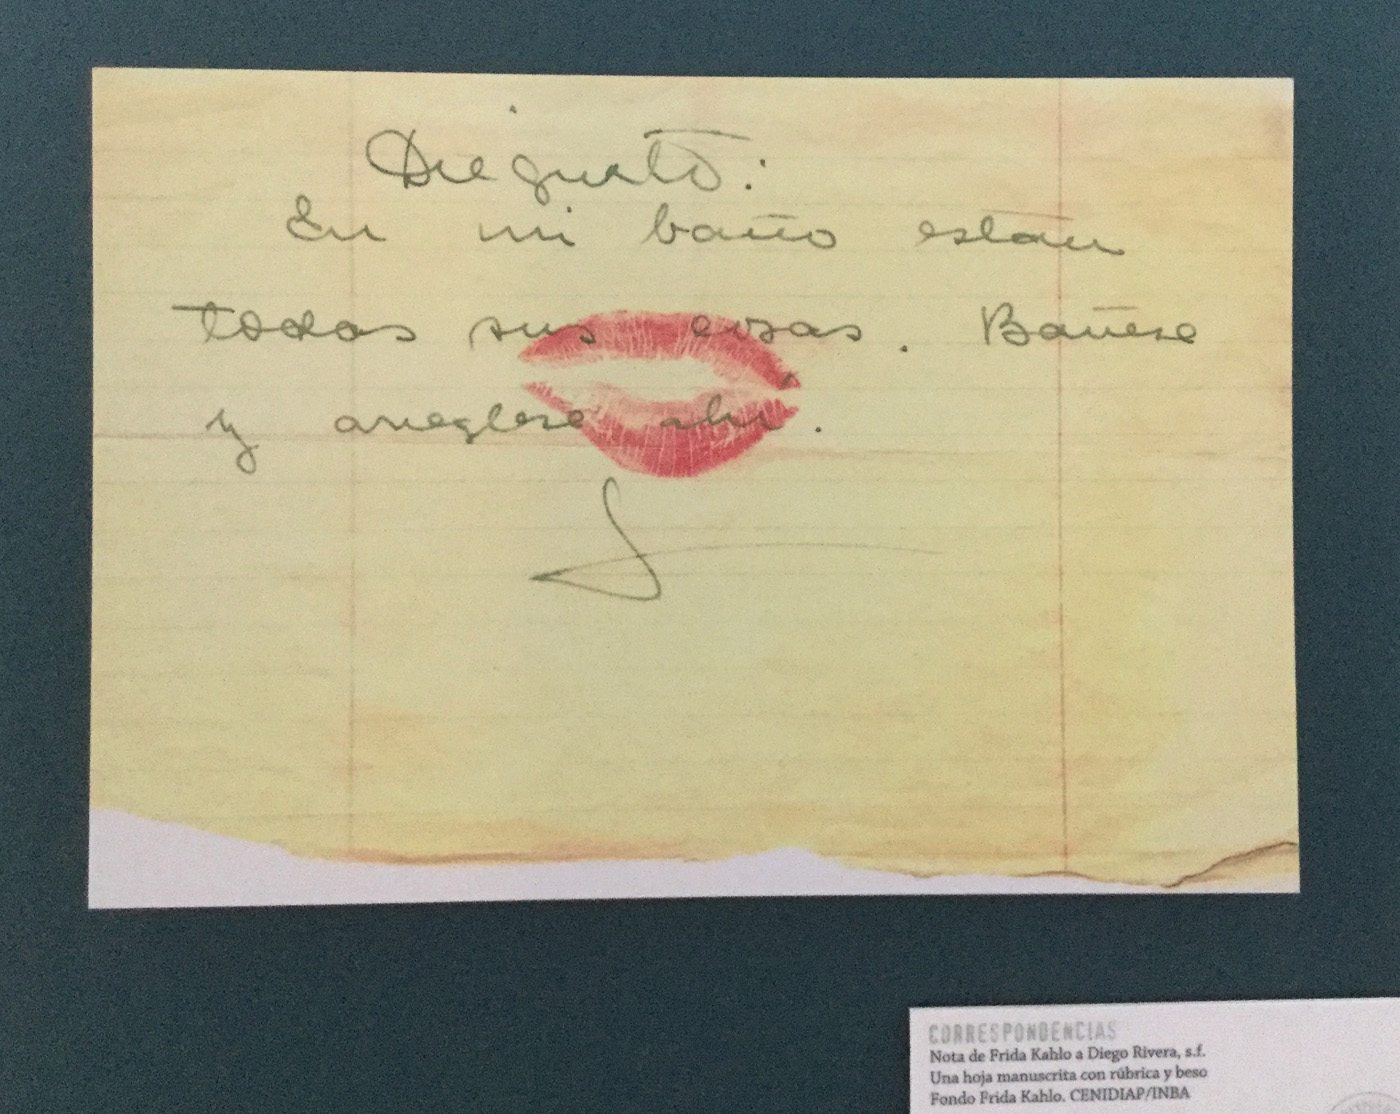 Dieguito:
En mi baño estan
todas sus cosas. Bañese
y arreglese ahí.
CORRESPONDENCIAS
Nota de Frida Kahlo a Diego Rivera, s.f.
Una hoja manuscrita con rúbrica y beso
Fondo Frida Kahlo. CENIDIAP/INBA